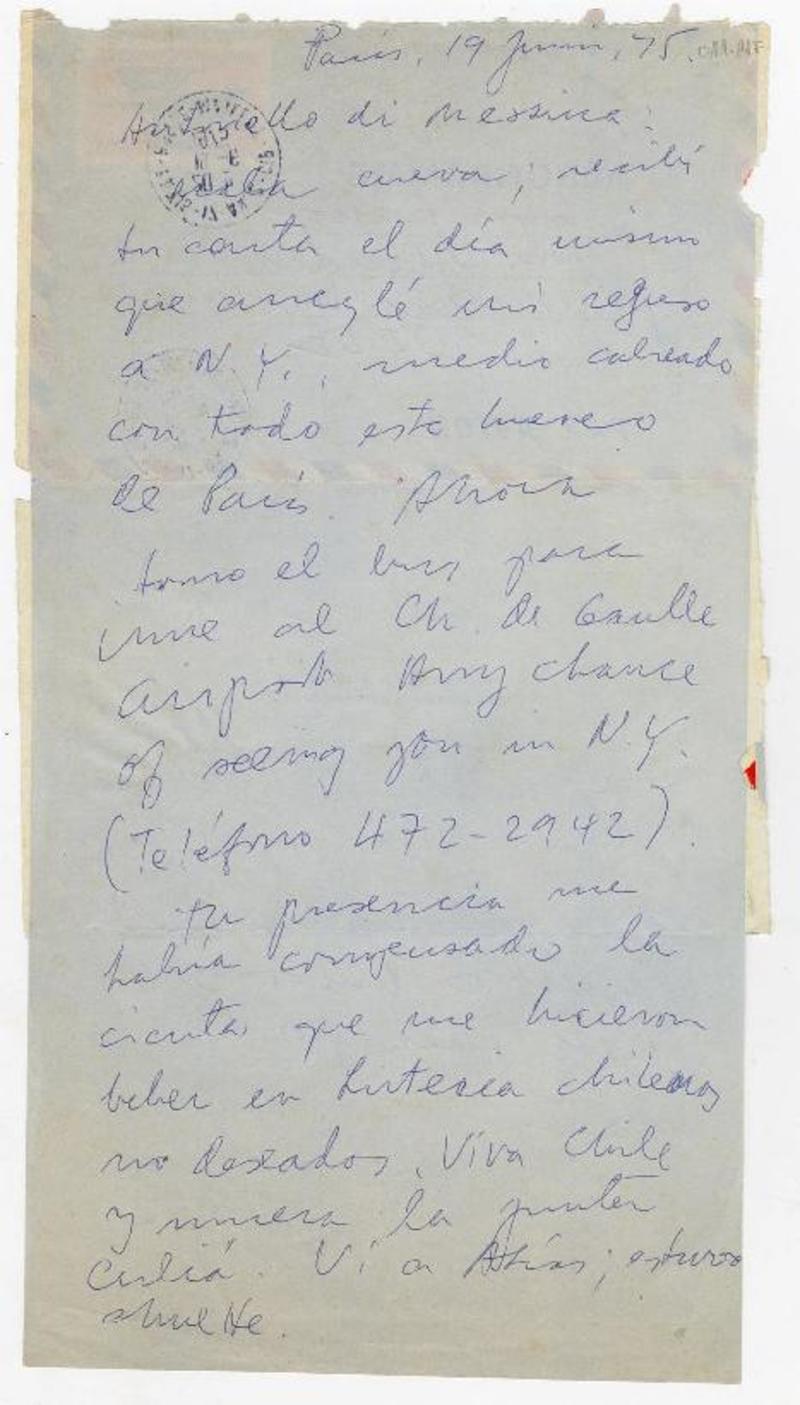 París, 19 Junio, 75.
Antonello di Messina:
cueva; recibí
tu carta el día mismo
que arreglé mi regreso
a N.Y., medio cabreado
con todo esto
de París. Ahora
tomo el bus para
irme al Ch. de Gaulle
airport. Any chance
of seeing you in N.Y.
(Teléfono 472-2942).
Tu presencia me
habría compensado la
cicuta que me hicieron
beber en Lutecia chilenos
no deseados. Viva Chile
y muera la junta
culiá. Vi a Atías; estuvo